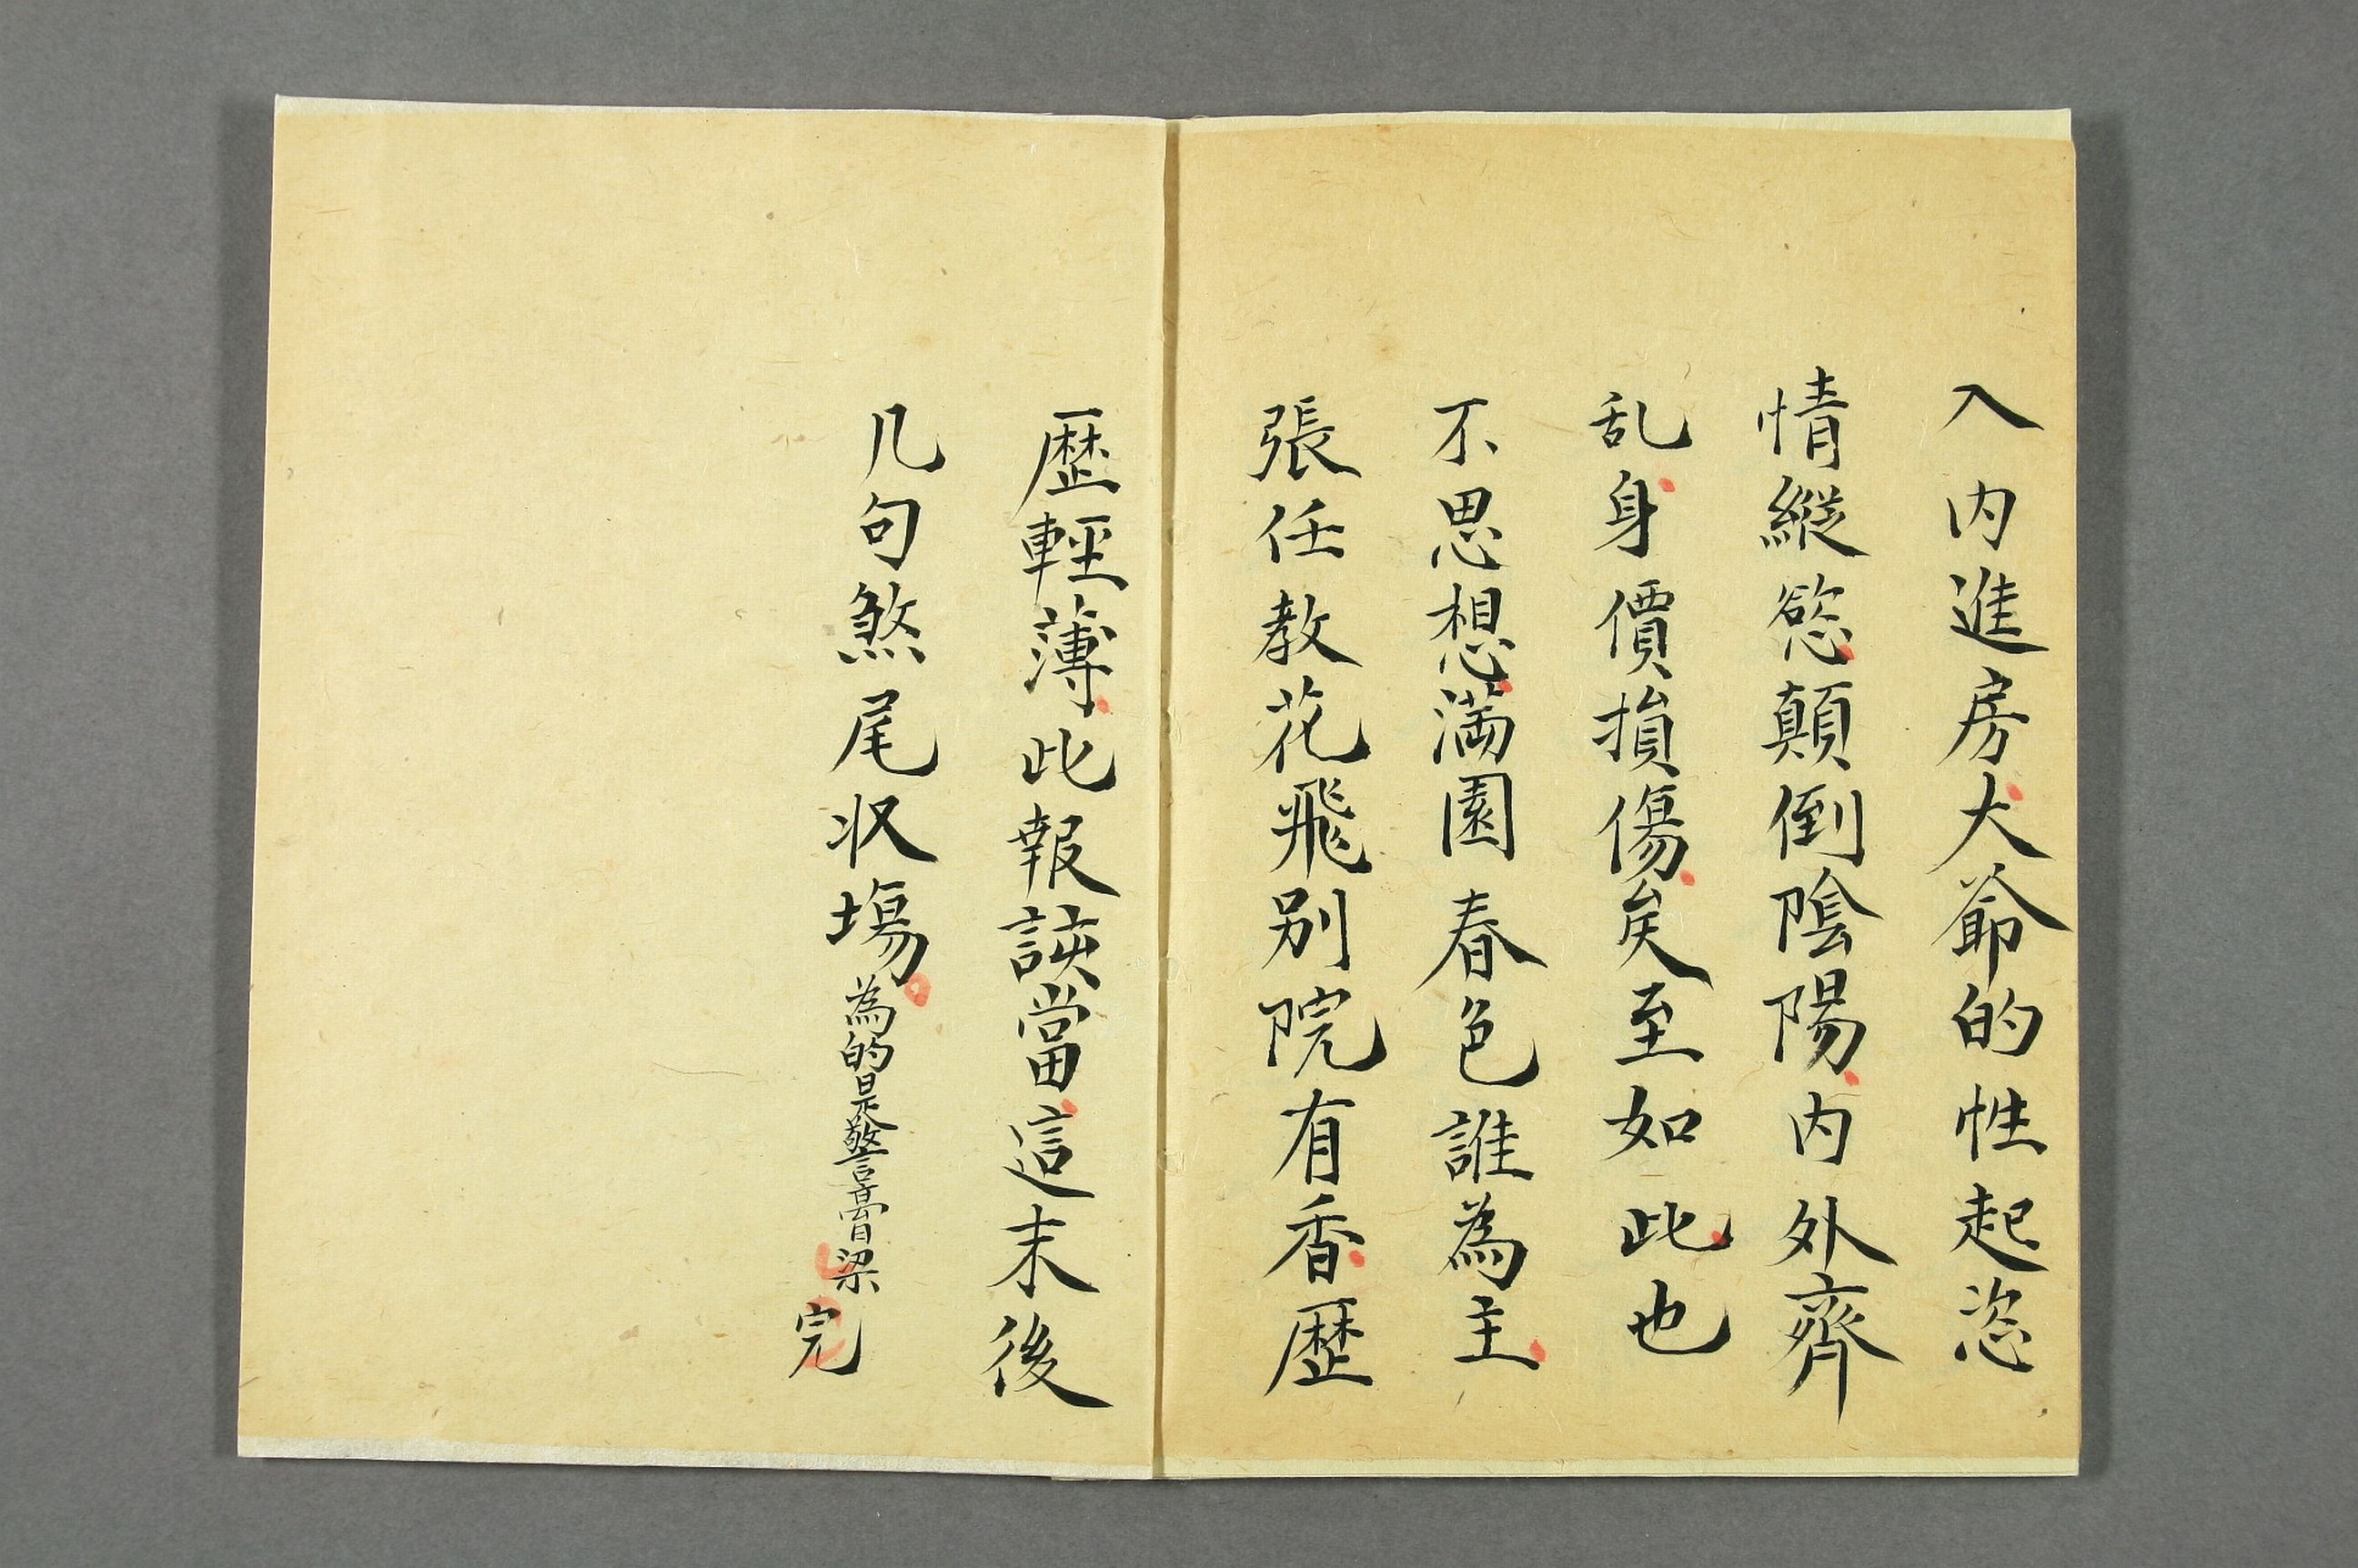 入内進房大爺的性起恣
情縱慾顛倒陰陽内外齊
乱身價損傷矣至如此也
不思想滿園春色誰為主
張任教花飛别院有香歴
歴輕薄此報該當這末後
几句煞尾収塲為的是警言膏梁
完